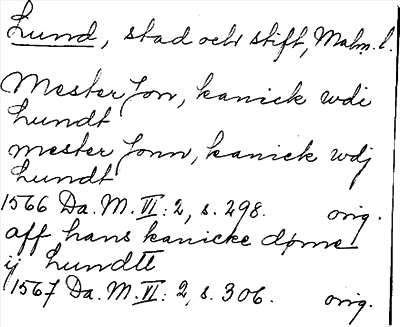 Lund, stad och stift, Malm. l.
Mester Jon, kanick wdi
Lundt
mester Jonn, kanick wdj
Lundt
1566 Da. M. VI: 2, s. 298. orig.
aff hans kanicke døme
ij Lundtt
1567 Da. M. VI: 2, s. 306. orig.